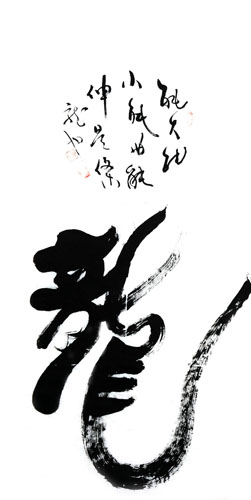 能大能
小能曲能
伸是條
龍也
龍